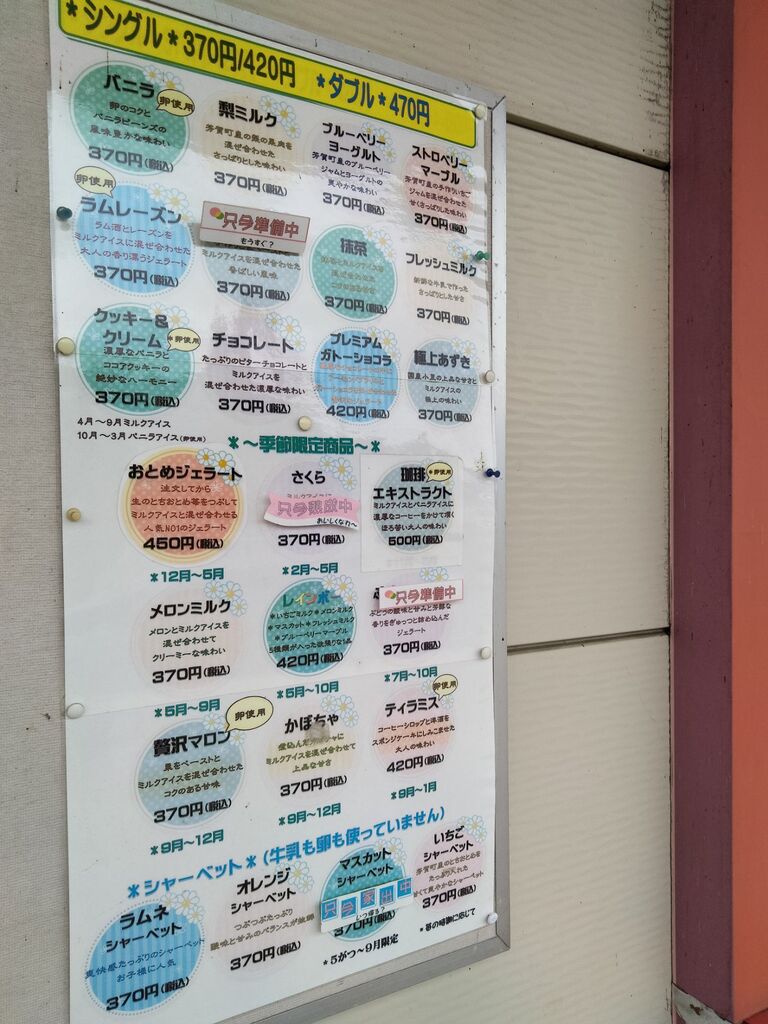 *シングル*370円/420円 *ダブル*470円
バニラ
卵使用
卵のコクと
バニラビーンズの
風味豊かな味わい
370円(税込)
梨ミルク
芳賀町産の梨の果肉を
混ぜ合わせた
さっぱりとした味わい
370円(税込)
ブルーベリー
ヨーグルト
芳賀町産のブルーベリー
ジャムとヨーグルトの
爽やかな味わい
370円(税込)
ストロベリー
マーブル
芳賀町産の手作りいちご
ジャムを混ぜ合わせた
甘くさっぱりした味わい
370円(税込)
卵使用
ラムレーズン
ラム酒とレーズンを
ミルクアイスに混ぜ合わせた
大人の香り漂うジェラート
370円(税込)
只今準備中
もうすぐ?
ミルクアイスに混ぜ合わせた
香ばしい風味
370円(税込)
抹茶
370円(税込)
フレッシュミルク
新鮮な牛乳で作った
さっぱりとした甘さ
370円(税込)
クッキー&
クリーム
*卵使用
濃厚なバニラと
ココアクッキーの
絶妙なハーモニー
370円(税込)
4月~9月ミルクアイス
10月~3月バニラアイス(卵使用)
チョコレート
たっぷりのビターチョコレートと
ミルクアイスを
混ぜ合わせた濃厚な味わい
370円(税込)
プレミアム
ガトーショコラ
420円(税込)
極上あずき
国産小豆の上品な甘さと
ミルクアイスの
極上の味わい
370円(税込)
*~季節限定商品~*
おとめジェラート
注文してから
生のとちおとめ苺をつぶして
ミルクアイスと混ぜ合わせる
人気NO1のジェラート
450円(税込)
*12月~5月
さくら
只今熟成中
おいしくなぁ~
370円(税込)
*2月~5月
珈琲
*卵使用
エキストラクト
ミルクアイスとバニラアイスに
濃厚なコーヒーをかけて頂く
ほろ苦い大人の味わい
500円(税込)
メロンミルク
メロンとミルクアイスを
混ぜ合わせて
クリーミーな味わい
370円(税込)
*5月~9月
レインボー
*いちごミルク*メロンミルク
*マスカット*フレッシュミルク
*ブルーベリーマーブル
5種類が入った欲張りな1品
420円(税込)
*5月~10月
只今準備中
ぶどうの酸味と甘みと芳醇な
香りをぎゅっと詰め込んだ
ジェラート
370円(税込)
*7月~10月
卵使用
贅沢マロン
栗をペーストと
ミルクアイスを混ぜ合わせた
コクのある甘味
370円(税込)
*9月~12月
かぼちゃ
煮込んだかぼちゃに
ミルクアイスを混ぜ合わせて
上品な甘さ
370円(税込)
*9月~12月
卵使用
ティラミス
コーヒーシロップと洋酒を
スポンジケーキにしみこませた
大人の味わい
420円(税込)
*9月~1月
*シャーベット*(牛乳も卵も使っていません)
ラムネ
シャーベット
爽快感たっぷりのシャーベット
お子様に人気
370円(税込)
オレンジ
シャーベット
つぶつぶたっぷり
酸味と甘みのバランスが抜群
370円(税込)
マスカット
シャーベット
只今家出中
いつ帰る?
370円(税込)
*5がつ~9月限定
いちご
シャーベット
芳賀町産のとちおとめを
たっぷり入れた
甘くて爽やかなシャーベット
370円(税込)
*苺の時期に応じて